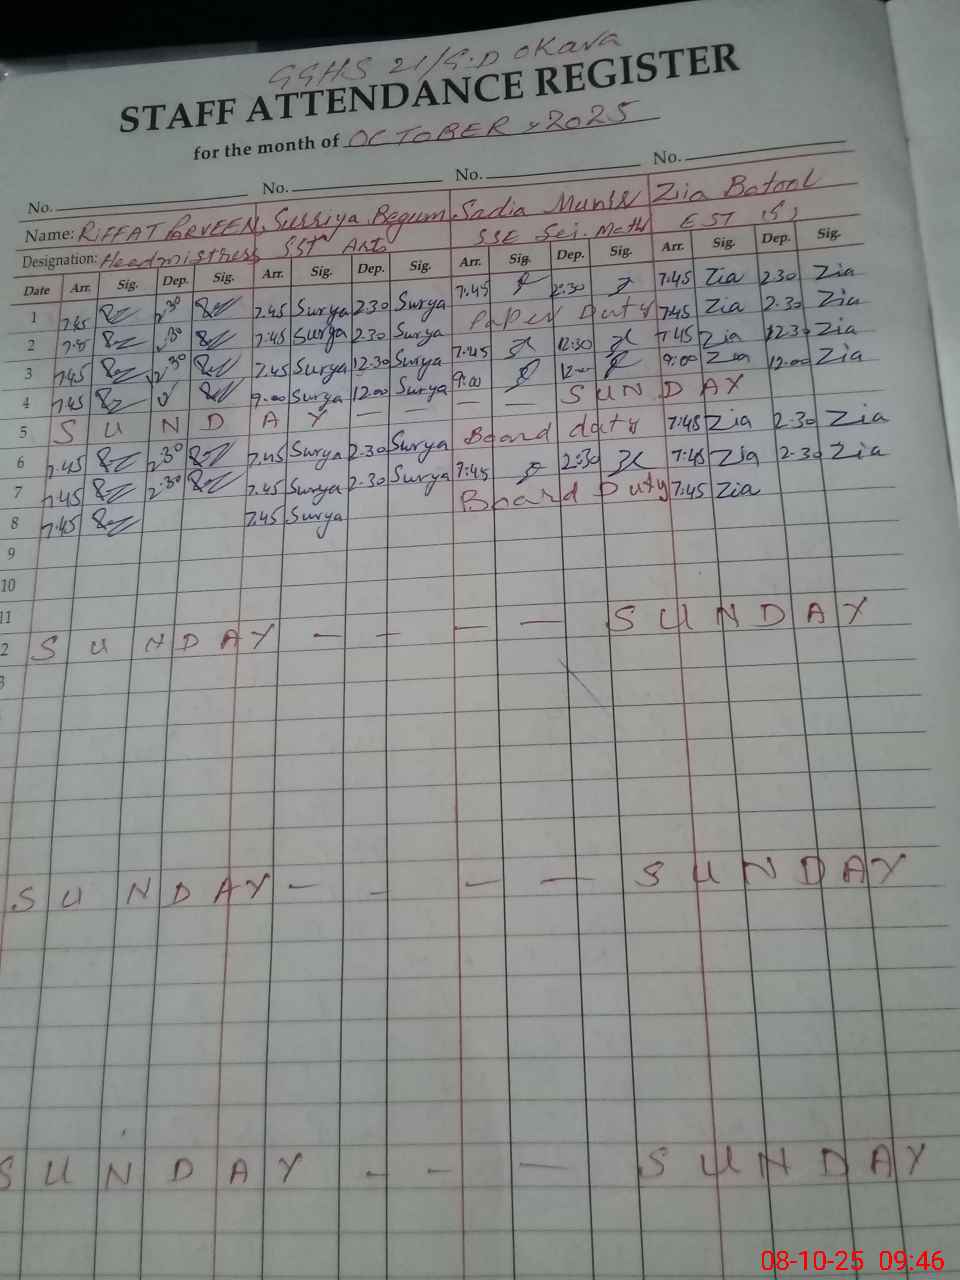 GGHS 21/G.D Okara
STAFF ATTENDANCE REGISTER
for the month of OCTOBER, 2025
No. No. No. No.
Name: RIFFAT PARVEEN, Surriya Begum Sadia Munir Zia Batool
Designation: Headmistress SST Arts SSE Sci. Math EST (S)
Date Arr. Sig. Dep. Sig. Arr. Sig. Dep. Sig. Arr. Sig. Dep. Sig. Arr. Sig. Dep. Sig.
1 7.45 2.30 7.45 Surya 2.30 Surya 7.45 2:30 7.45 Zia 2.30 Zia
2 2.30 7.45 Surya 2.30 Surya Paper Duty 7.45 Zia 2.30 Zia
3 7.45 7.45 Surya 12.30 Surya 7.45 12:30 7.45 Zia 12.30 Zia
4 7.45 9.00 Surya 12.00 Surya 9:00 12.00 9:00 Zia 12.00 Zia
5 S U N D A Y — — — S U N D A Y
6 7.45 2.30 7.45 Surya 2.30 Surya Board duty 7.45 Zia 2.30 Zia
7 7.45 2.30 7.45 Surya 2.30 Surya 7:45 2:30 7.45 Zia 2.30 Zia
8 7.45 7.45 Surya Board Duty 7.45 Zia
9
10
11
2 S U N D A Y — — — — S U N D A Y
3
S U N D A Y — — — — S U N D A Y
S U N D A Y - - — S U N D A Y
08-10-25 09:46